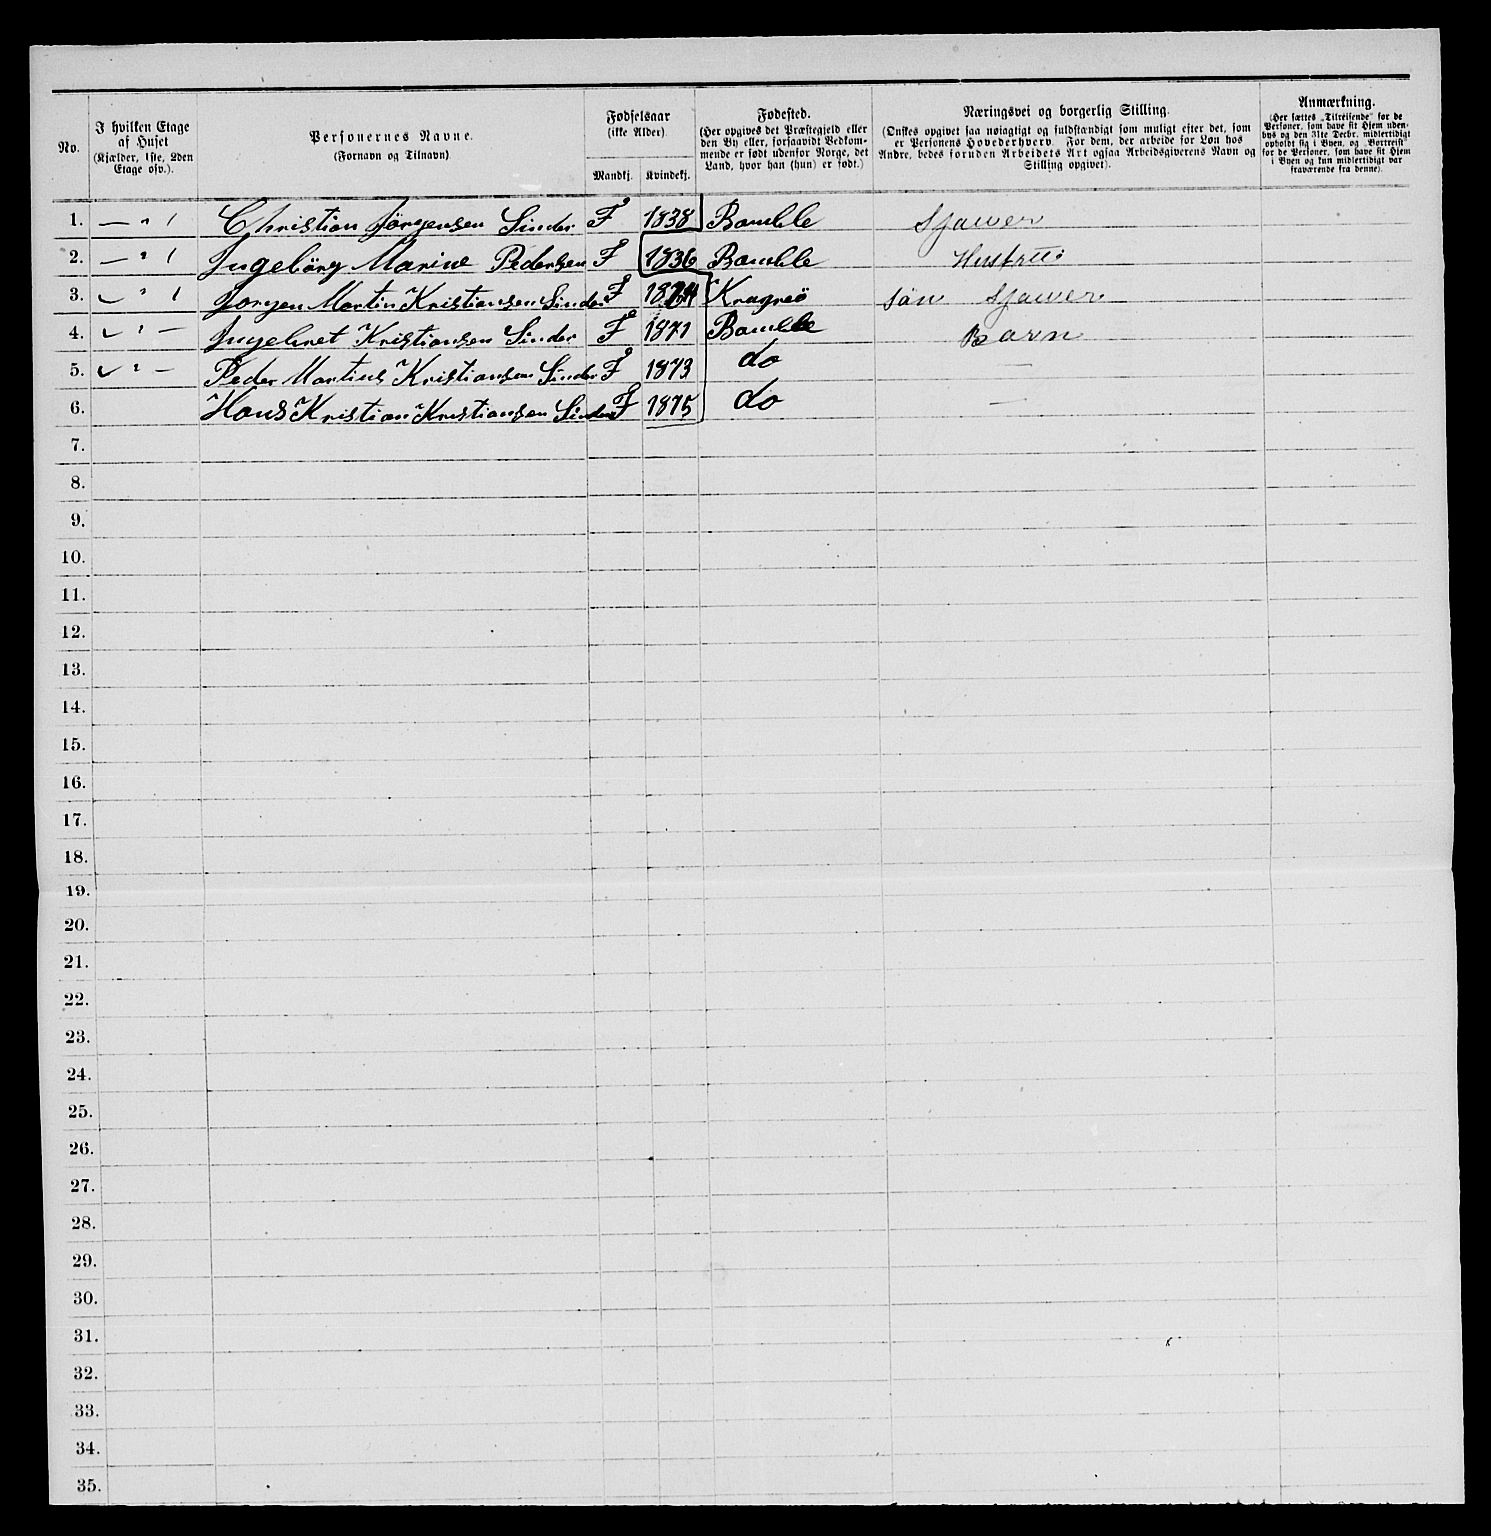 No.
I hvilken Etage
af Huset
(Kjælder, 1ste, 2den
Etage osv.).
Personernes Navne.
(Fornavn og Tilnavn)
Fødselsaar
(ikke Alder).
Mandkj. Kvindekj.
Fødested.
(Her opgives det Præstegjeld eller
den By eller, forsaavidt Vedkom-
mende er født udenfor Norge, det
Land, hvor han (hun) er født.)
Næringsvei og borgerlig Stilling.
(Ønskes opgivet saa nøiagtigt og fuldstændigt som muligt efter det, som
er Personens Hovederhverv. For dem, der arbeide for Løn hos
Andre, bedes foruden Arbeidets Art ogsaa Arbeidsgiverens Navn og
Stilling opgivet).
Anmærkning.
(Her sættes „Tilreisende" for de
Personer, som have sit Hjem uden-
bys og den 31te Decbr. midlertidigt
opholdt sig i Byen, og „Bortreist"
for de Personer, som have sit Hjem
i Byen og kun midlertidigt var
fraværende fra denne).
1. — " 1 Christian Jörgensen Sinder F 1838 Bamble Sjawer
2. — " 1 Ingebörg Marine Pedersen F 1836 Bamble Husfru
3. " 1 Jorgen Martin Kristiansen Sinder F Kragreö sön Sjawer
4. " — Kristiansen Sinder F 1871 Bamble Barn
5. " — Peder Martius Kristiansen Sinder F 1873 do —
6. Hans Kristian Kristiansen Sinder F 1875 do —
7.
8.
9.
10.
11.
12.
13.
14.
15.
16.
17.
18.
19.
20.
21.
22.
23.
24.
25.
26.
27.
28.
29.
30.
31.
32.
33.
34.
35.